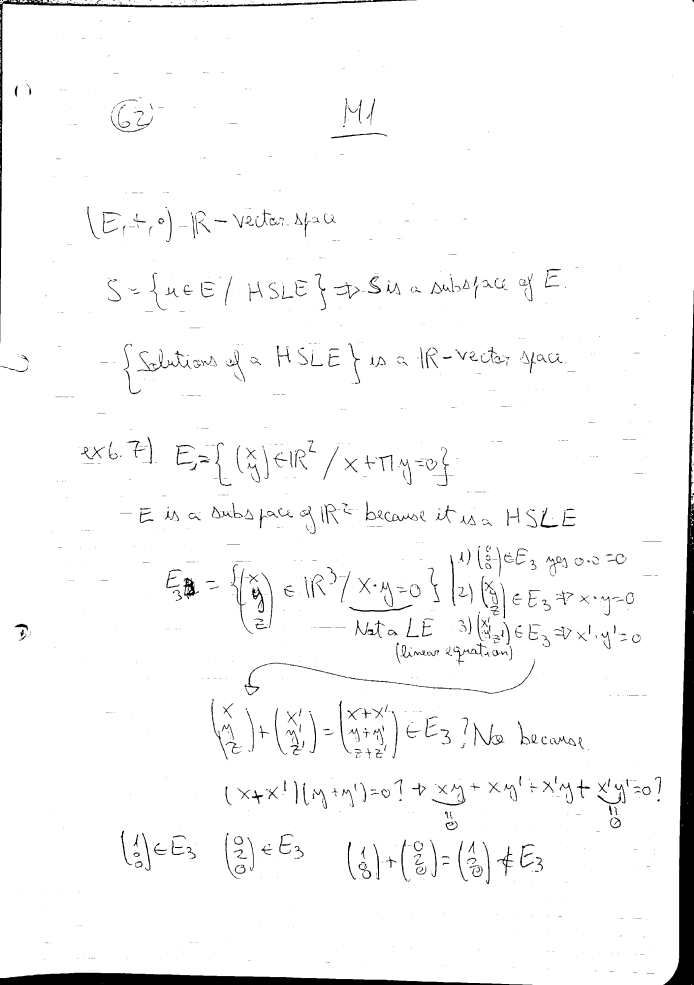 62
M1
(E,+,∘) - IR - vector space
S = {u ∈ E / HSLE} ⇒ S is a subspace of E.
{Solutions of a HSLE} is a IR - vector space
ex 6.7) E₁ = {(x y) ∈ IR² / x + πy = 0}
- E is a subspace of IR² because it is a HSLE
E₃ = {(x y z) ∈ IR³ / x·y = 0}
Not a LE
(linear equation)
1) (0 0 0) ∈ E₃ yes 0·0 = 0
2) (x y z) ∈ E₃ ⇒ x·y = 0
3) (x' y' z') ∈ E₃ ⇒ x'·y' = 0
(x y z) + (x' y' z') = (x+x' y+y' z+z') ∈ E₃? No because
(x+x')(y+y') = 0? ⇒ xy + xy' + x'y + x'y' = 0?
= 0 = 0
(1 0 0) ∈ E₃ (0 2 0) ∈ E₃ (1 0 0) + (0 2 0) = (1 2 0) ∉ E₃